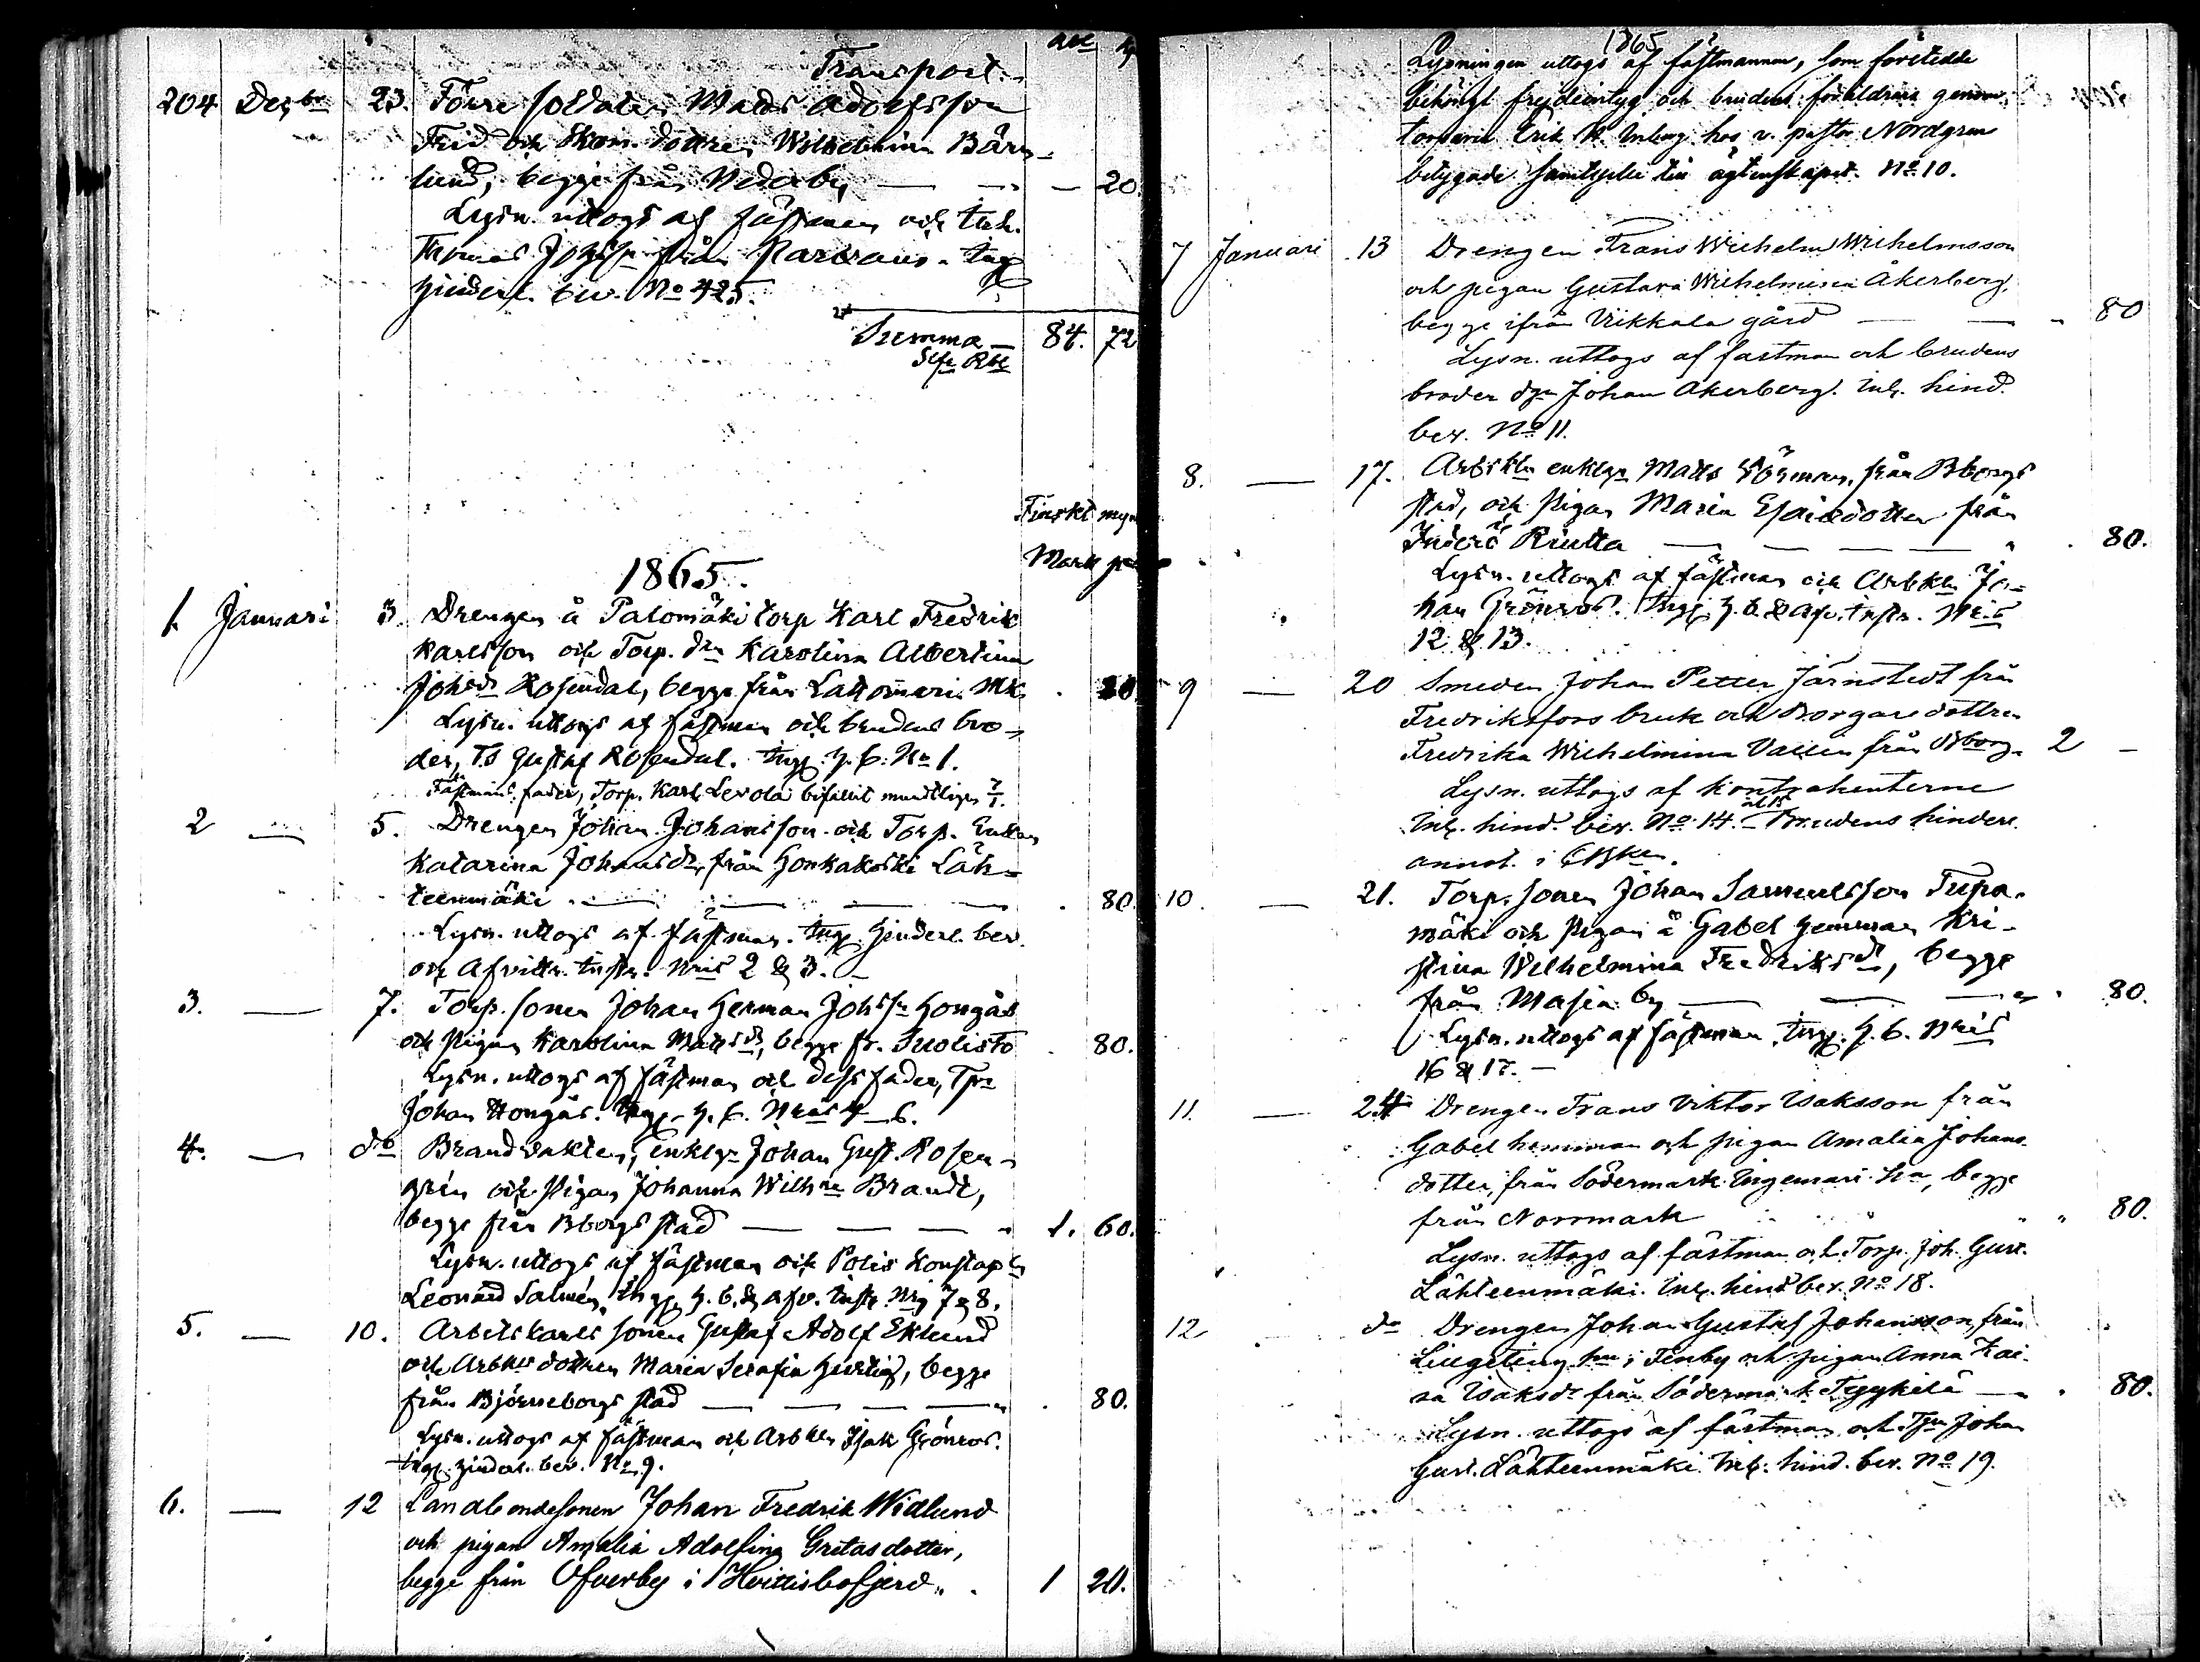 Transport
204 Decbr 23. Förre soldaten Mats Adolfsson
Frid och Skom. dottren Wilhelmina Bärn-
lund, begge från Nederby — — — 20.
Lysn. uttogs af fästman och
Thomas från
hinderl. bev. No 425.
Summa — 84. 72
Silfr Rbl
Finskt myn
1865.
Mark
1. Januari 3. Drengen å Palomäki torp Karl Fredrik
Karlsson och Torp. drn Karolina Albertina
Johsdr Rosendal, begge från Lattomeri
Lysn. uttogs af fästman och brudens bro-
der, Gustaf Rosendal. Ingg. h. b. No 1.
Fästmans fader, Torp. Karl Levola bifallit muntligen 7/1.
2 — 5. Drengen Johan Johansson och Torp. Enkan
Katarina Johansdr, från Honkakoski Läh-
teenmäki — — — . 80.
Lysn. uttogs af fästman. Ingg. Hinderl. bev.
och Afvittr. instr. Nris 2 & 3. —
3. — 7. Torp. sonen Johan Herman Johssn Hongås
och Pigan Karolina Matsdr, begge fr. Suolisto . 80.
Lysn. uttogs af fästman och dess fader, Tpn
Johan Hongås. Ingg. h. b. Nris 4 — 6.
4. — do Brandvakten, enklgn Johan Gust. Rosen-
grén och Pigan Johanna Wilhna Brandt,
begge från Bborgs stad — — — 1. 60.
Lysn. uttogs af fästman och Polis Konstapln
Leonard Salmén, Ingg. h. b. & afv. instr. Nris 7 & 8.
5. — 10. Arbetskarls sonen Gustaf Adolf Eklund
och Arbkls dottren Maria Serafia, begge
från Björneborgs stad — — — . 80.
Lysn. uttogs af fästman och Arbkln Isak Grönroos.
Ingg. hinderl. bev. No 9.
6. — 12 Landbondesonen Johan Fredrik Widlund
och pigan Amalia Adolfina Gretasdotter,
begge från Ofverby i Hvittisbofjerd „ . 1 20.
1865
Lysningen uttogs af fästmannen, som företedde
behörigt frejdeintyg och brudens föräldrars genom
torparen Erik hos v. pastor Nordgren
betygade samtycke till ägtenskapet. No 10.
7 Januari 13 Drengen Frans Wilhelm Wilhelmsson
och pigan Gustava Wilhelmina Åkerberg,
begge ifrån Vikkala gård — — - 80
Lysn. uttogs af fästman och brudens
broder dgn Johan Åkerberg. Inl. hind.
bev. No 11.
8. — 17. Arbtkln enklgn Matts från Bborgs
stad, och Pigan Maria Esaiædotter från
Inderö Riutta — — — — . 80.
Lysn. uttogs af fästman och Arbkln Jo-
han Grönroos. Ingg. h. b. & afv. instr. Nris
12 & 13.
9 — 20 Smeden Johan Petter Järnstedt från
Fredriksfors bruk och Borgaredottren
Fredrika Wilhelmina Vallen från Bborg. 2 —
Lysn. uttogs af Kontrahenterne
Inl. hind. bev. No 14. och 15 — Brudens hinderl.
annot. i
10. — 21. Torp. sonen Johan Samuelsson Tupa-
mäki och Pigan å Gabel hemman Kri-
stina Wilhelmina Fredriksdr, begge
från Masia by — — — . 80.
Lysn. uttogs af fästman, Ingg. h. b. Nris
16 & 17. —
11. — 24 Drengen Frans Viktor Isaksson från
Gabel hemman och pigan Amalia Johans-
dotter, från Södermark Ingemari hn, begge
från Norrmark „ „ 80.
Lysn. uttogs af fästman och Torp. Joh. Gust.
Lähteenmäki. Inl. hind. bev. No 18.
12 do Drengen Johan Gustaf Johansson, från
hn i Finby och pigan Anna Kai-
sa Isaksdr från Södermark — . 80.
Lysn. uttogs af fästman och Tpn Johan
Gust. Lähteenmäki. Inl. hind. bev. No 19.